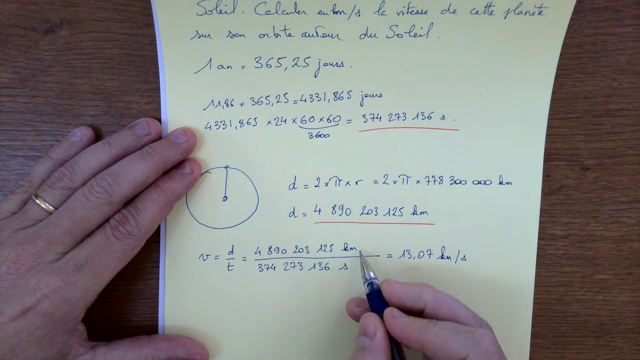 Soleil. Calculer en km/s la vitesse de cette planète
sur son orbite autour du Soleil.
1 an = 365,25 jours.
11,86 × 365,25 = 4331,865 jours
4331,865 × 24 × 60 × 60 = 374 273 136 s.
3600
d = 2 × π × r = 2 × π × 778 300 000 km
d = 4 890 203 125 km
v = d/t = 4 890 203 125 km / 374 273 136 s = 13,07 km/s